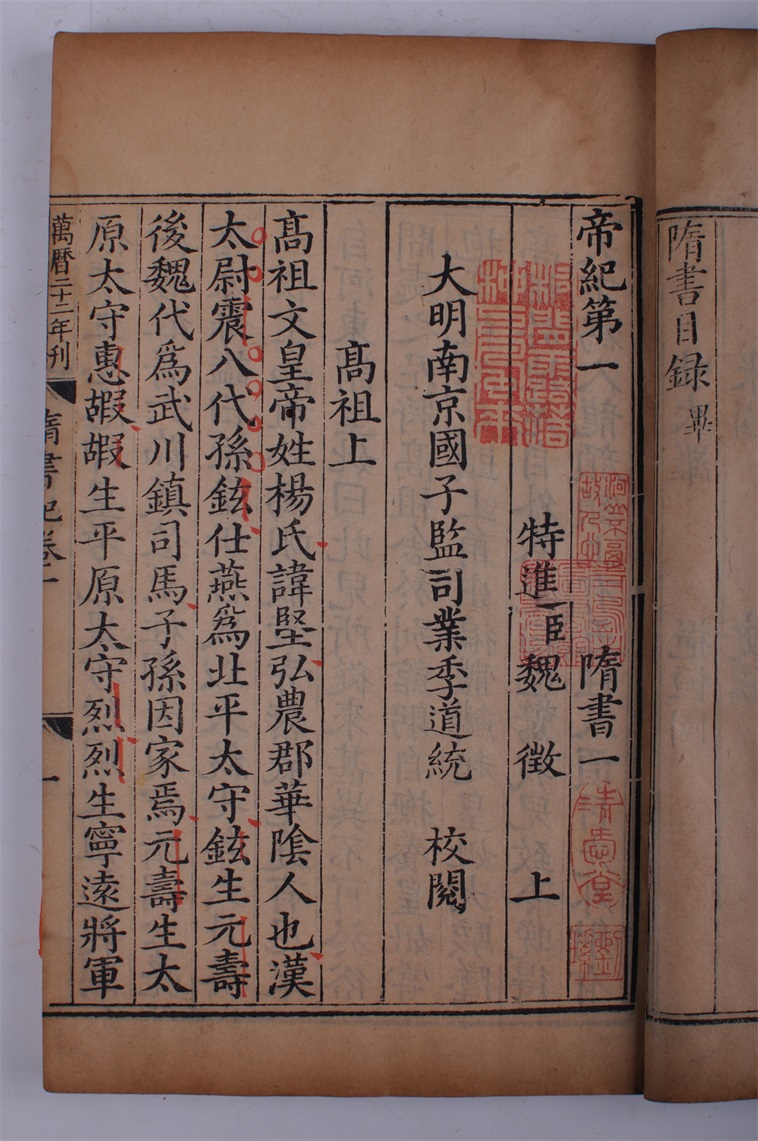 隋書目録 畢
帝紀第一 隋書一
特進臣魏徵上
大明南京國子監司業季道統校閱
高祖上
髙祖文皇帝姓楊氏諱堅弘農郡華陰人也漢
太尉震八代孫鉉仕燕爲北平太守鉉生元壽
後魏代爲武川鎮司馬子孫因家焉元壽生太
原太守惠嘏嘏生平原太守烈烈生寧遠將軍
萬曆二十二年刊 隋書紀卷一 一
清壑堂